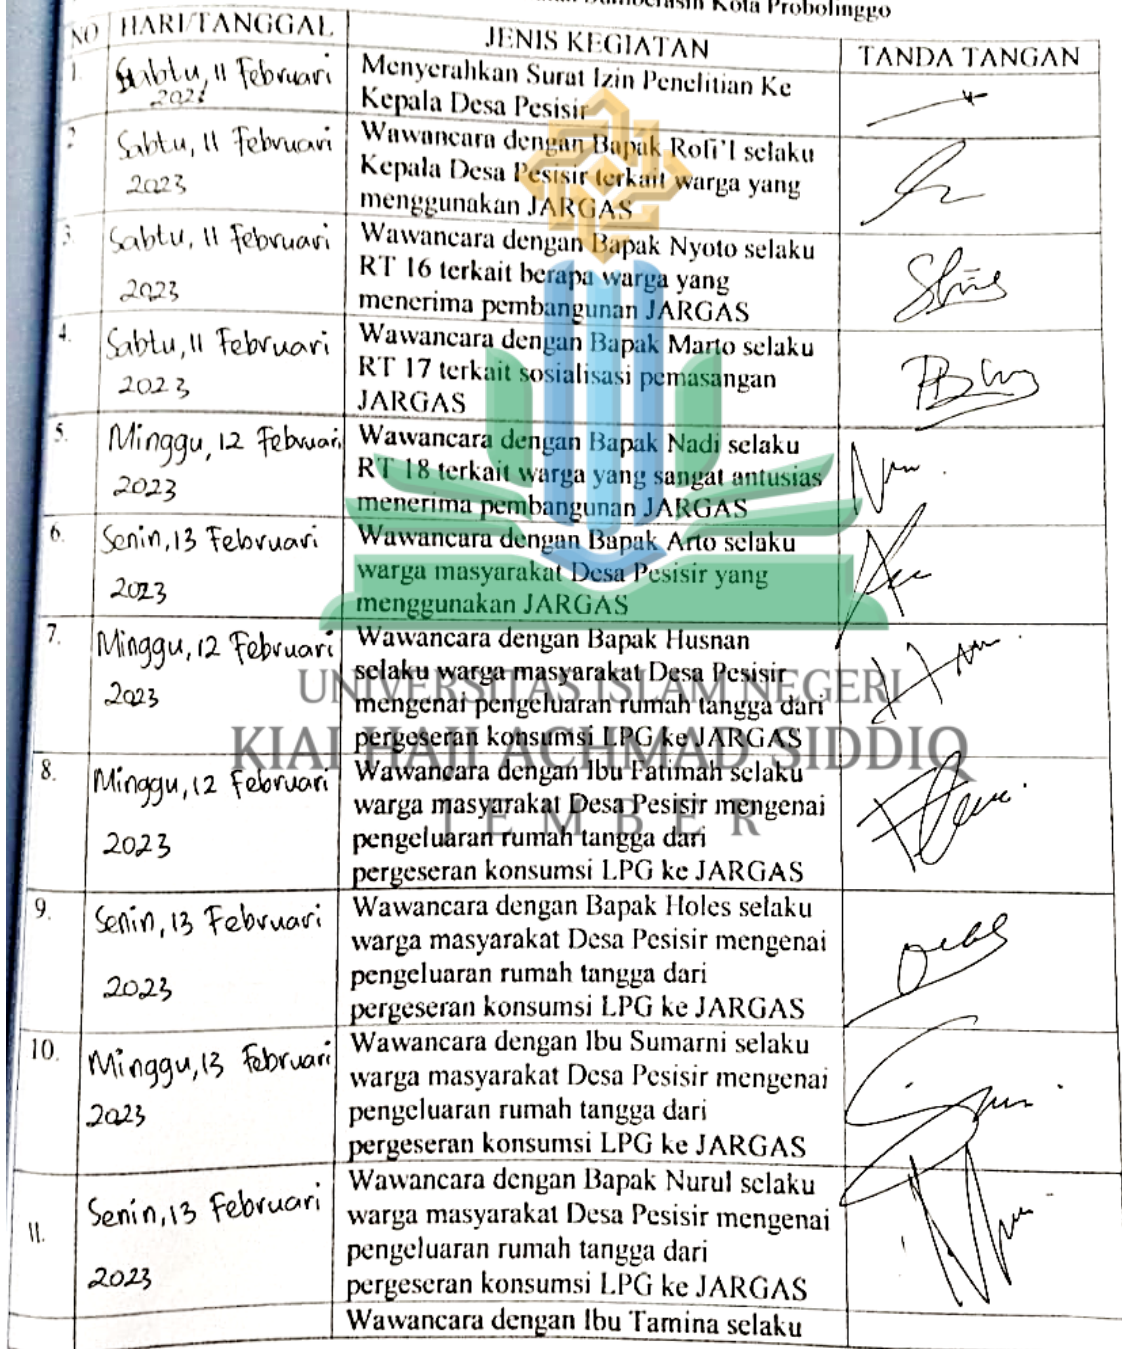 Sumberasih Kota Probolinggo
NO HARI/TANGGAL JENIS KEGIATAN TANDA TANGAN
1. Sabtu, 11 Februari Menyerahkan Surat Izin Penelitian Ke
Kepala Desa Pesisir
2 Sabtu, 11 Februari Wawancara dengan Bapak Rofi'I selaku
2023 Kepala Desa Pesisir terkait warga yang
menggunakan JARGAS
3. Sabtu, 11 Februari Wawancara dengan Bapak Nyoto selaku
2023 RT 16 terkait berapa warga yang
menerima pembangunan JARGAS
4. Sabtu, 11 Februari Wawancara dengan Bapak Marto selaku
2023 RT 17 terkait sosialisasi pemasangan
JARGAS
5. Minggu, 12 Februari Wawancara dengan Bapak Nadi selaku
2023 RT 18 terkait warga yang sangat antusias
menerima pembangunan JARGAS
6. Senin, 13 Februari Wawancara dengan Bapak Arto selaku
2023 warga masyarakat Desa Pesisir yang
menggunakan JARGAS
7. Minggu, 12 Februari Wawancara dengan Bapak Husnan
2023 selaku warga masyarakat Desa Pesisir
mengenai pengeluaran rumah tangga dari
pergeseran konsumsi LPG ke JARGAS
UNIVERSITAS ISLAM NEGERI
KIAI HAJI ACHMAD SIDDIQ
JEMBER
8. Minggu, 12 Februari Wawancara dengan Ibu Fatimah selaku
2023 warga masyarakat Desa Pesisir mengenai
pengeluaran rumah tangga dari
pergeseran konsumsi LPG ke JARGAS
9. Senin, 13 Februari Wawancara dengan Bapak Holes selaku
2023 warga masyarakat Desa Pesisir mengenai
pengeluaran rumah tangga dari
pergeseran konsumsi LPG ke JARGAS
10. Minggu, 13 Februari Wawancara dengan Ibu Sumarni selaku
2023 warga masyarakat Desa Pesisir mengenai
pengeluaran rumah tangga dari
pergeseran konsumsi LPG ke JARGAS
11. Senin, 13 Februari Wawancara dengan Bapak Nurul selaku
2023 warga masyarakat Desa Pesisir mengenai
pengeluaran rumah tangga dari
pergeseran konsumsi LPG ke JARGAS
Wawancara dengan Ibu Tamina selaku